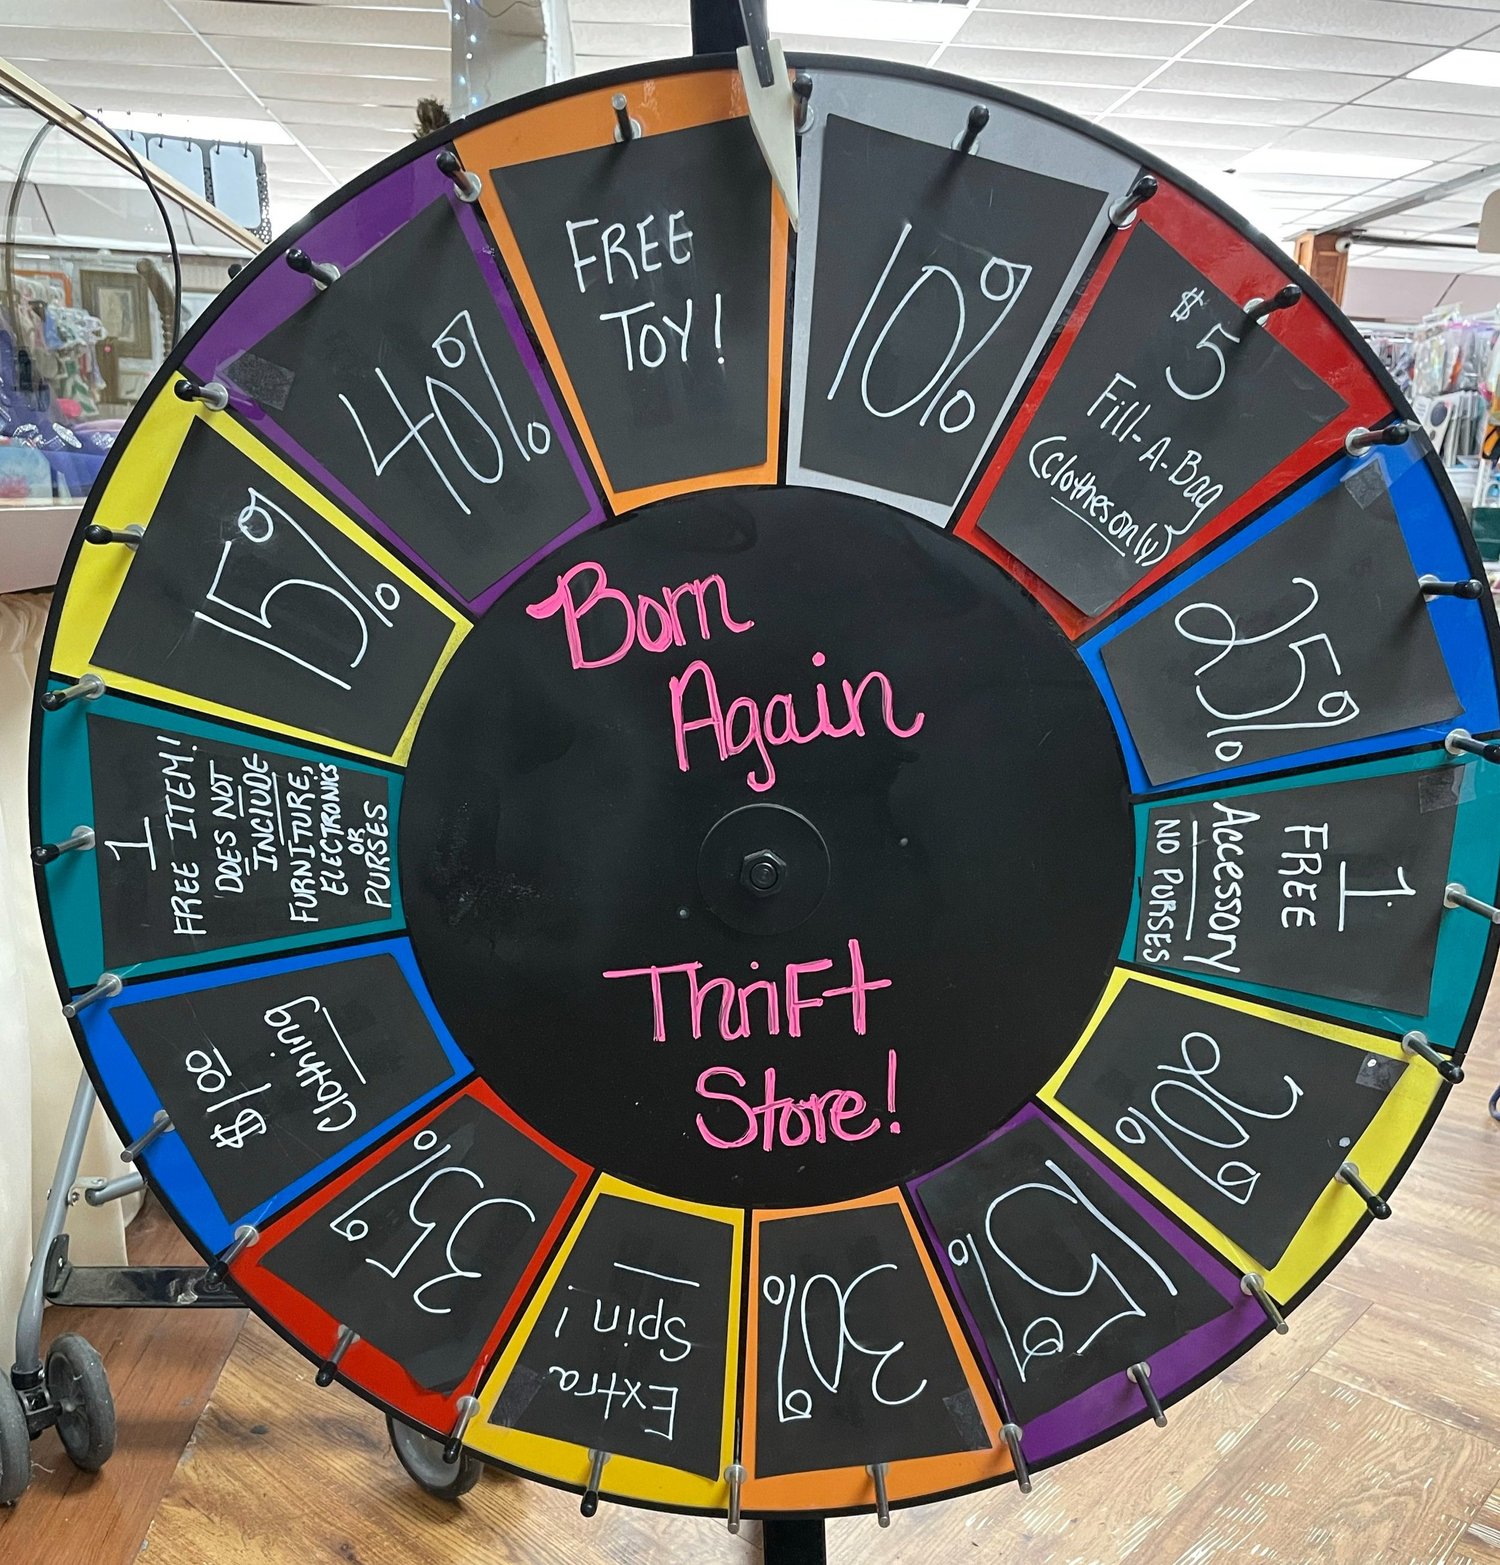 FREE
TOY!
10%
$5
Fill-A-Bag
(clothes only)
25%
1
FREE
Accessory
NO PURSES
20%
15%
30%
Extra
Spin!
35%
$1.00
Clothing
1
FREE ITEM!
DOES NOT
INCLUDE
FURNITURE,
ELECTRONICS
OR
PURSES
15%
40%
Born
Again
Thrift
Store!